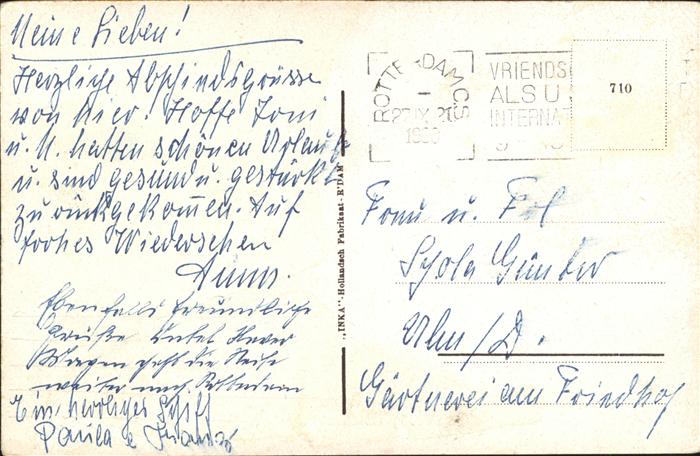 Meine Lieben!
Herzliche Abschiedsgrüsse
von hier! Hoffe Toni
u. M. hatten schönen Urlaub
u. sind gesund u. gestärkt
zurückgekommen. Auf
frohes Wiedersehen
Anna.
Ebenfalls freundliche
Grüße Onkel Xaver
Morgen geht die Reise
weiter nach
Ein herrliches Schiff
Paula
"INKA" Hollandsch Fabrikaat - R'DAM
ROTTERDAM CS
1
IX 21
VRIENDS
ALS U
INTERNA
710
Frau u. Frl
Günther
Ulm/D.
Gärtnerei am Friedhof